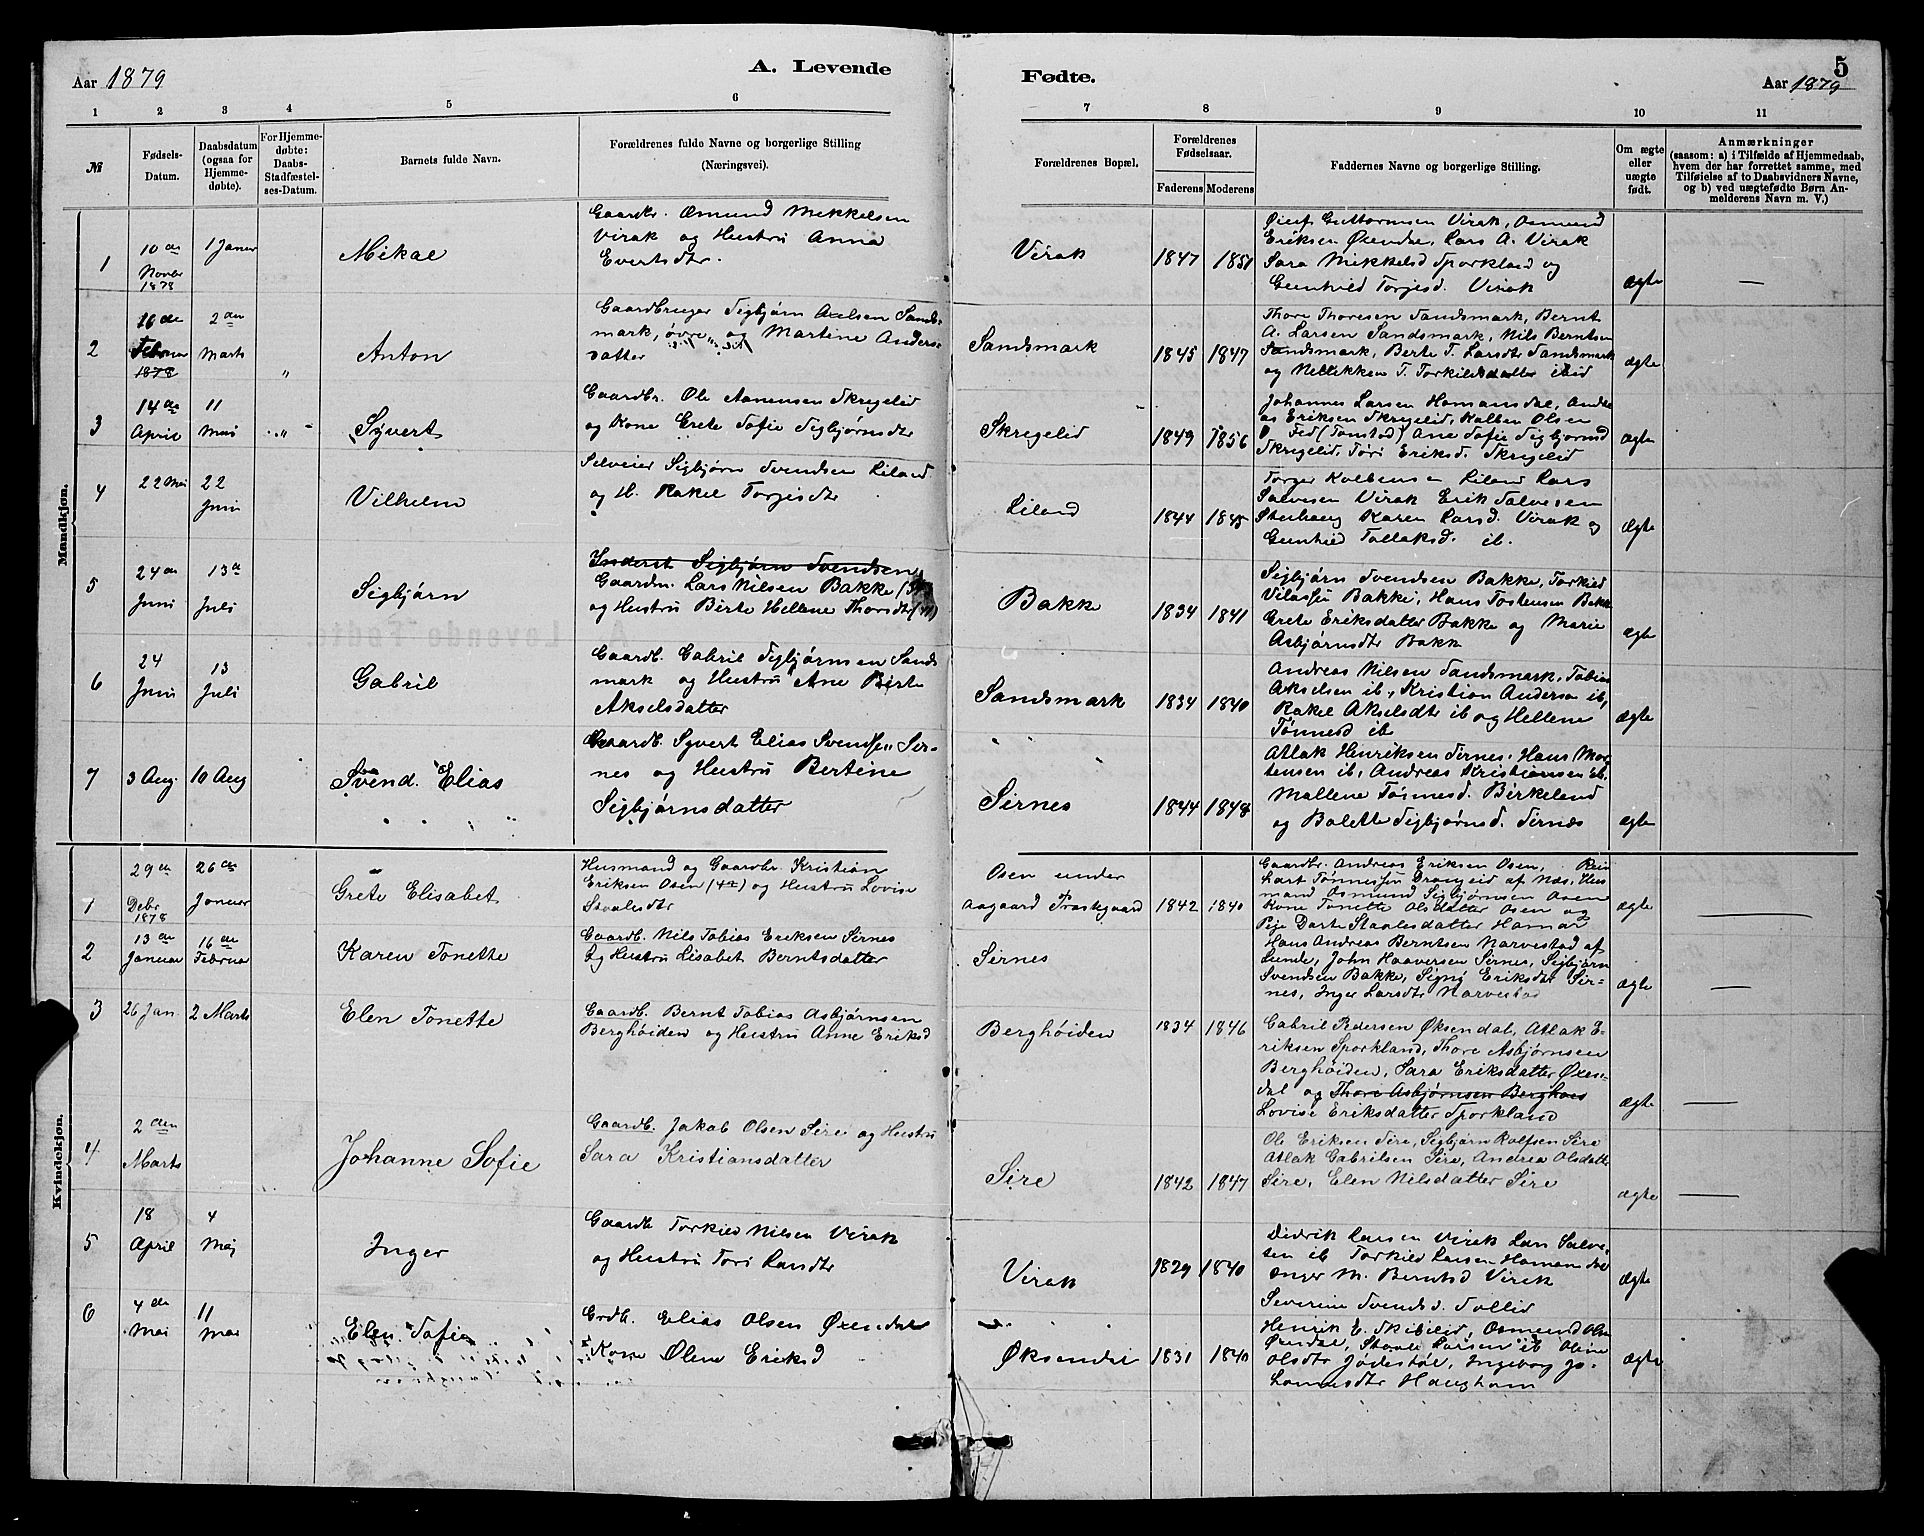 Aar 1879
A. Levende
Fødte.
5
Aar 1879
1 2 3 4 5 6 7 8 9 10 11
№
Fødsels-Datum.
Daabsdatum (ogsaa for Hjemmedøbte).
For Hjemmedøbte: Daabs-Stadfæstelses-Datum.
Barnets fulde Navn.
Forældrenes fulde Navne og borgerlige Stilling (Næringsvei).
Forældrenes Bopæl.
Forældrenes Fødselsaar.
Faderens Moderens
Faddernes Navne og borgerlige Stilling.
Om ægte eller uægte født.
Anmærkninger
(saasom: a) i Tilfælde af Hjemmedaab, hvem der har forrettet samme, med Tilføielse af to Daabsvidners Navne, og b) ved uægtefødte Børn Anmelderens Navn m. V.)
Mandkjøn.
1
10de Novbr 1878
1 Januar
Mikal
Gaardbr. Osmund Mekkelsen
Virak og Hustru Anna
Evertsdtr.
Virak
1847 1851
Guttormsen Virak, Osmund
Eriksen Øxendal, Lars A. Virak
Sara Mikkelsd Sporkland og
Gunhild Torjesd. Virak
ægte
—
2
16de Februar 1878
2den Marts
"
Anton
Gaardbruger Sigbjørn Axelsen Sands-
mark, øvre, og Martine Anders-
datter
Sandsmark
1845 1847
Thore Thoresen Sandsmark, Bernt
A. Larsen Sandsmark, Nils Berntsen
Sandsmark, Berte T. Larsdtr Sandsmark
og T. Torkildsdatter ibid
ægte
3
14de April
11 Mai
Syvert
Gaardbr. Ole Aanensen Skregelid
og Kone Grete Sofie Sigbjørnsdtr
Skregelid
1849 1856
Johannes Larsen Homansdal, Andre
as Eriksen Skregelid, Kolben Olsen
Fed (Tonstad) Ane Sofie Sigbjørnsd
Skregelid, Tori Eriksd. Skregelid
ægte
4
22 Mai
22 Juni
Vilhelm
Selveier Sigbjørn Svendsen Liland
og H. Rakel Torjisdtr
Liland
1844 1845
Torger Kolbensen Liland Lars
Salvesen Virak Erik Salvesen
Karen Larsd. Virak og
Gunhild Tollaksd. ib.
ægte
5
24de Juni
13de Juli
Sigbjørn
Inderst Sigbjørn Svendsen
Gaardm. Lars Nilsen Bakke
og Hustru Birte Hellene Thorsdtr
Bakk
1834 1841
Sigbjørn Svendsen Bakke, Torkild
Bakke, Hans Tostensen Bakk
Grete Eriksdatter Bakke og Marie
Asbjørnsdtr Bakk
ægte
6
24 Juni
13 Juli
Gabril
Gaardb. Gabril Sigbjørnsen Sands
mark og Hustru Ane Birte
Akselsdatter
Sandsmark
1834 1840
Andreas Nilsen Sandsmark, Tobias
Akselsen ib, Kristian Andersen ib,
Rakel Akselsdtr ib og Hellene
Tønnesd ib
ægte
7
3 Aug.
10 Aug
Svend Elias
Gaardb. Syvert Elias Svendsen Sir-
nes og Hustru Bertine
Sigbjørnsdatter
Sirnes
1844 1848
Atlak Henriksen Sirnes, Hans Mor
tensen ib, Andreas Kristiansen ib.
Mallene Tønnesd. Birkeland
og Bolette Sigbjørnsd. Sirnæs
ægte
Kvindekjøn.
1
29de Debr 1878
26de Januar
Grete Elisabet
Husmand og Gaardbr. Kristian
Eriksen Osen og Hustru Lovise
Staalesdtr
Osen under
Aagaard Præstegaard
1842 1840
Gaardbr. Andreas Eriksen Osen, Rein
hart Tønnessen Drangeid af Næs, Hus
mand Osmund Sigbjørnsen Osen
Kone Tonette Olsdatter Osen og
Pige Dorte Staalesdatter Hamar
ægte
—
2
13de Januar
16de Februar
Karen Tonette
Gaardb. Nils Tobias Eriksen Sirnes
og Hustru Lisabet Berntsdatter
Sirnes
Hans Andreas Berntsen Narvestad af
Lunde, John Haaversen Sirnes, Sigbjørn
Svendsen Bakke, Signe Eriksdtr Sir-
nes, Inger Larsdtr Narvestad
ægte
—
3
26 Jan.
2 Marts
Elen Tonette
Gaardb. Bernt Tobias Asbjørnsen
Berghøiden og Hustru Anne Eriksd
Berghøiden
1834 1846
Gabril Pedersen Øksendal, Atlak E-
riksen Sporkland, Thore Asbjørnsen
Berghøiden, Sara Eriksdatter Øxen-
dal og Thore Asbjørnsen Berghøi
Lovise Eriksdatter Sporkland
ægte
—
4
2den Marts
Johanne Sofie
Gaardb. Jakob Olsen Sire og Hustru
Sara Kristiansdatter
Sire
1842 1847
Ole Eriksen Sire, Sigbjørn Rolfsen Sire
Atlak Gabrilsen Sire, Andrea Olsdatter
Sire, Elen Nilsdatter Sire
ægte
—
5
18 April
4 Maj
Inger
Gaardb Torkild Nilsen Virak
og Hustru Tori Larsdtr
Virak
1829 1840
Didrik Larsen Virak Lars Salve-
sen ib Torkild Larsen Homansdal
Inger M. Berntsd Virak
Severine Svendsd. Sollid
ægte
6
4de Mai
11 Mai
Elen Sofie
Grdb. Elias Olsen Øxendal
Kone Oline Eriksd
Øksendal
1831 1840
Henrik E. Skibelid, Osmund Olsn
Øxndal, Staale Larsen ib Oline
Olsdtr Jødestøl, Ingeborg Jo-
hannesdtr Haugham
ægte